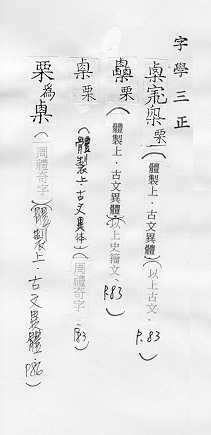 字學三正
㮚 栗(體製上．古文異體)(以上古文．P.83)
栗(體製上．古文異體)(以上史籀文．P.83)
㮚 栗(體製上．古文異体)(周禮奇字．P.83)
栗為㮚(周禮奇字)(體製上．古文異體．P.86)